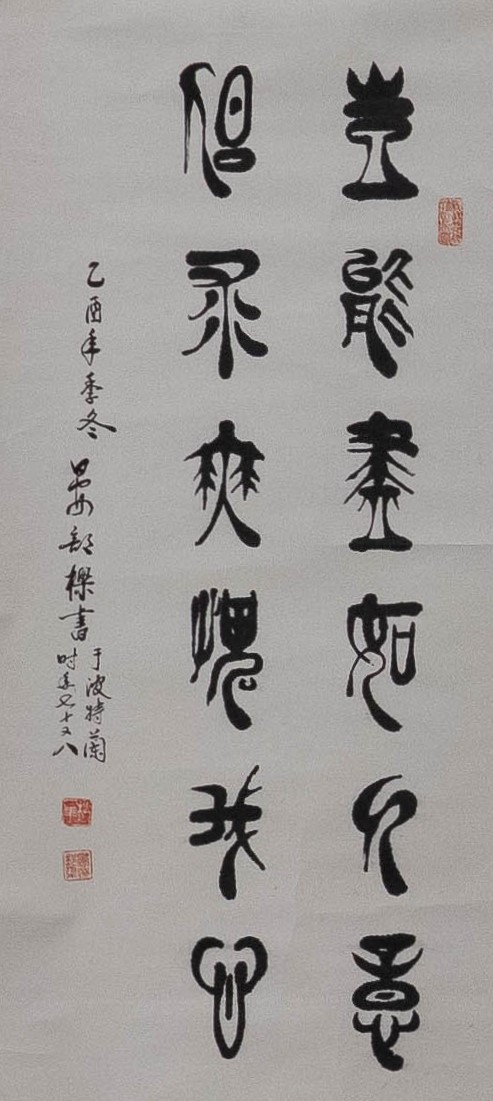 豈能盡如人意
但求無愧我心
乙酉年季冬
晏部樑書
于波特蘭
时年七十又八